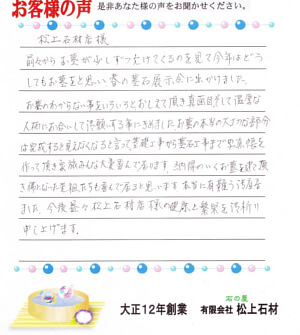 お客様の声 是非あなた様の声をお聞かせください。
松上石材店様
前々からお墓が少しずつかけてくるのを見て今年はどう
してもお墓をと思い春の墓石展示会に出かけました。
お墓のわからない事をいろいろとおしえて頂き真面目そして温厚な
人柄にお会いして御願いする事にきめましたお墓の本当の大切な部分
は完成すると見えなくなると言って基礎工事から墓石工事まで写真帳を
作って頂き家族みんな大変喜んで居ります。納得のいくお墓を建て頂
き 亡くなった先祖たちも喜んで居ると思います 本当に有難う御座居
ました。今後益々松上石材店様の健康と繁栄を御祈り
申し上げます。
大正12年創業
石の屋
有限会社 松上石材